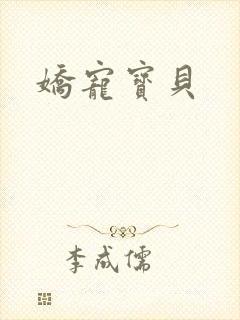 嬌寵寶貝
李成儒